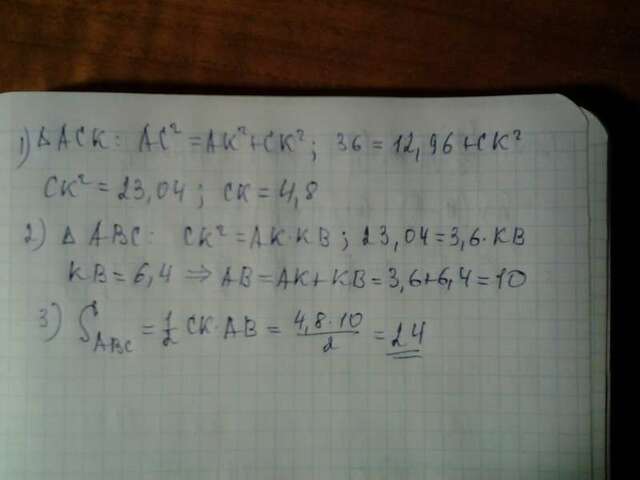 1) Δ ACK: AC² = AK² + CK²; 36 = 12,96 + CK²
CK² = 23,04; CK = 4,8
2) Δ ABC: CK² = AK·KB; 23,04 = 3,6·KB
KB = 6,4 ⇒ AB = AK + KB = 3,6 + 6,4 = 10
3) S_ABC = 1/2 CK·AB = 4,8·10/2 = 24